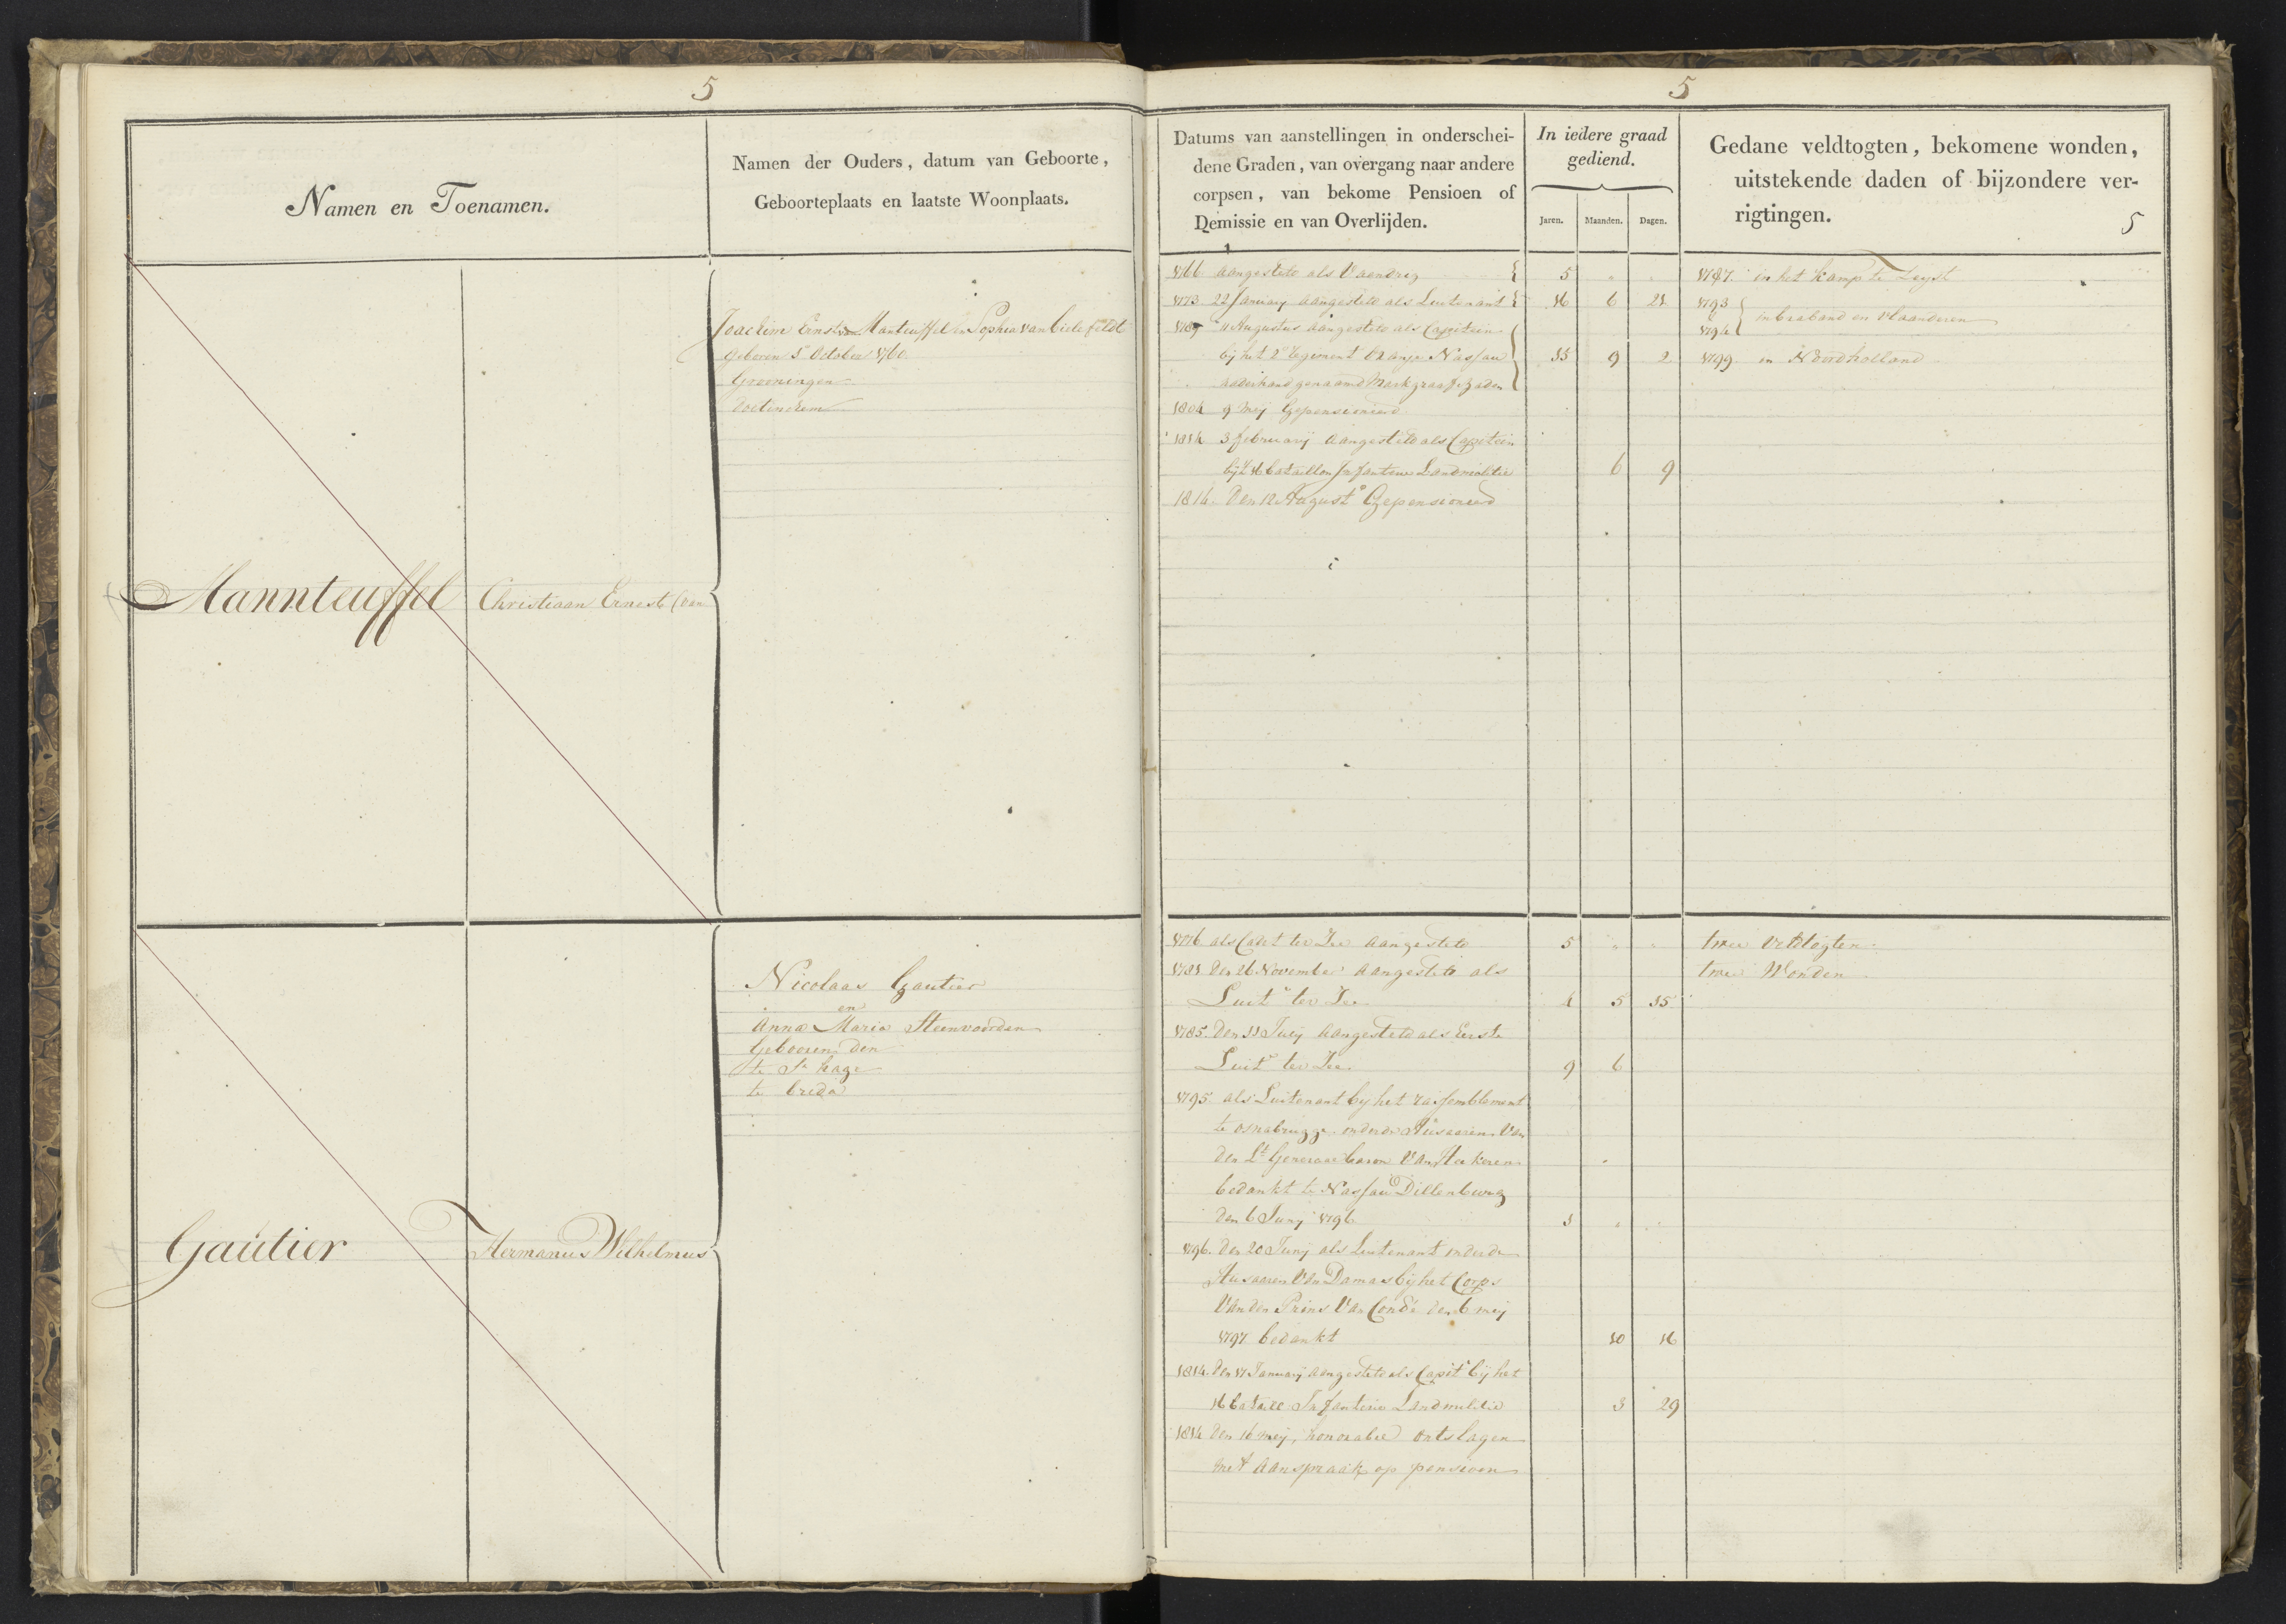 5
Namen en Toenamen.
Namen der Ouders, datum van Geboorte,
Geboorteplaats en laatste Woonplaats.
Mannteuffel
Christiaan Ernest (van
Joachim Ernst van Manteuffel en Sophia van Bielefeldt
Geboren 5 October 1760
Groeningen
Doetinchem
Gautier
Hermanus Wilhelmus
Nicolaas Gautier
en
Anna Maria Steenvoorden
Gebooren den
te S. hage
te breda
5
Datums van aanstellingen in onderschei-
dene Graden, van overgang naar andere
corpsen, van bekome Pensioen of
Demissie en van Overlijden.
In iedere graad
gediend.
Jaren. Maanden. Dagen.
Gedane veldtogten, bekomene wonden,
uitstekende daden of bijzondere ver-
rigtingen.
5
1766 aangesteld als Vaandrig 5 " "
1773 22 January aangesteld als Luitenant 16 6 21
1789 11 Augustus aangesteld als Capitein
bij het 2e Regiment Oranje Nassau 11 9 2
naderhand genaamd Markgraaf Baden
1804 9 Meij Gepensioneerd
1814 3 february aangesteld als Capitein
bij 't 16 bataillon Infanterie Landmilitie 6 9
1814 Den 12 August Gepensioneerd
1787 in het kamp te Zeyst
1793
1794 in braband en Vlaanderen
1799 in Noordholland
1776 als Cadet ter Zee aangesteld 5 " "
1781 Den 26 November aangesteld als
Luit. ter Zee 4 5 15
1785. Den 11 Juny aangesteld als Eerste
Luit. ter Zee 9 6
1795 als Luitenant bij het rassemblement
te osnabrugge onder de Husaaren Van
den Lt. Generaal baron Van Heekeren
bedankt te Nassau Dillenburg
den 6 Juny 1796 1 " "
1796. den 20 Juny als Luitenant onder de
Husaaren Van Damas bij het Corps
Van den Prins Van Condé den 6 mey
1797 bedankt 10 16
1814. Den 17 January aangesteld als Capit. bij het
16 bataill. Infanterie Landmilitie 3 29
1814 den 16 mey, honorabel ontslagen
met aanspraak op pensioen
twee Veldtogten
twee Wonden